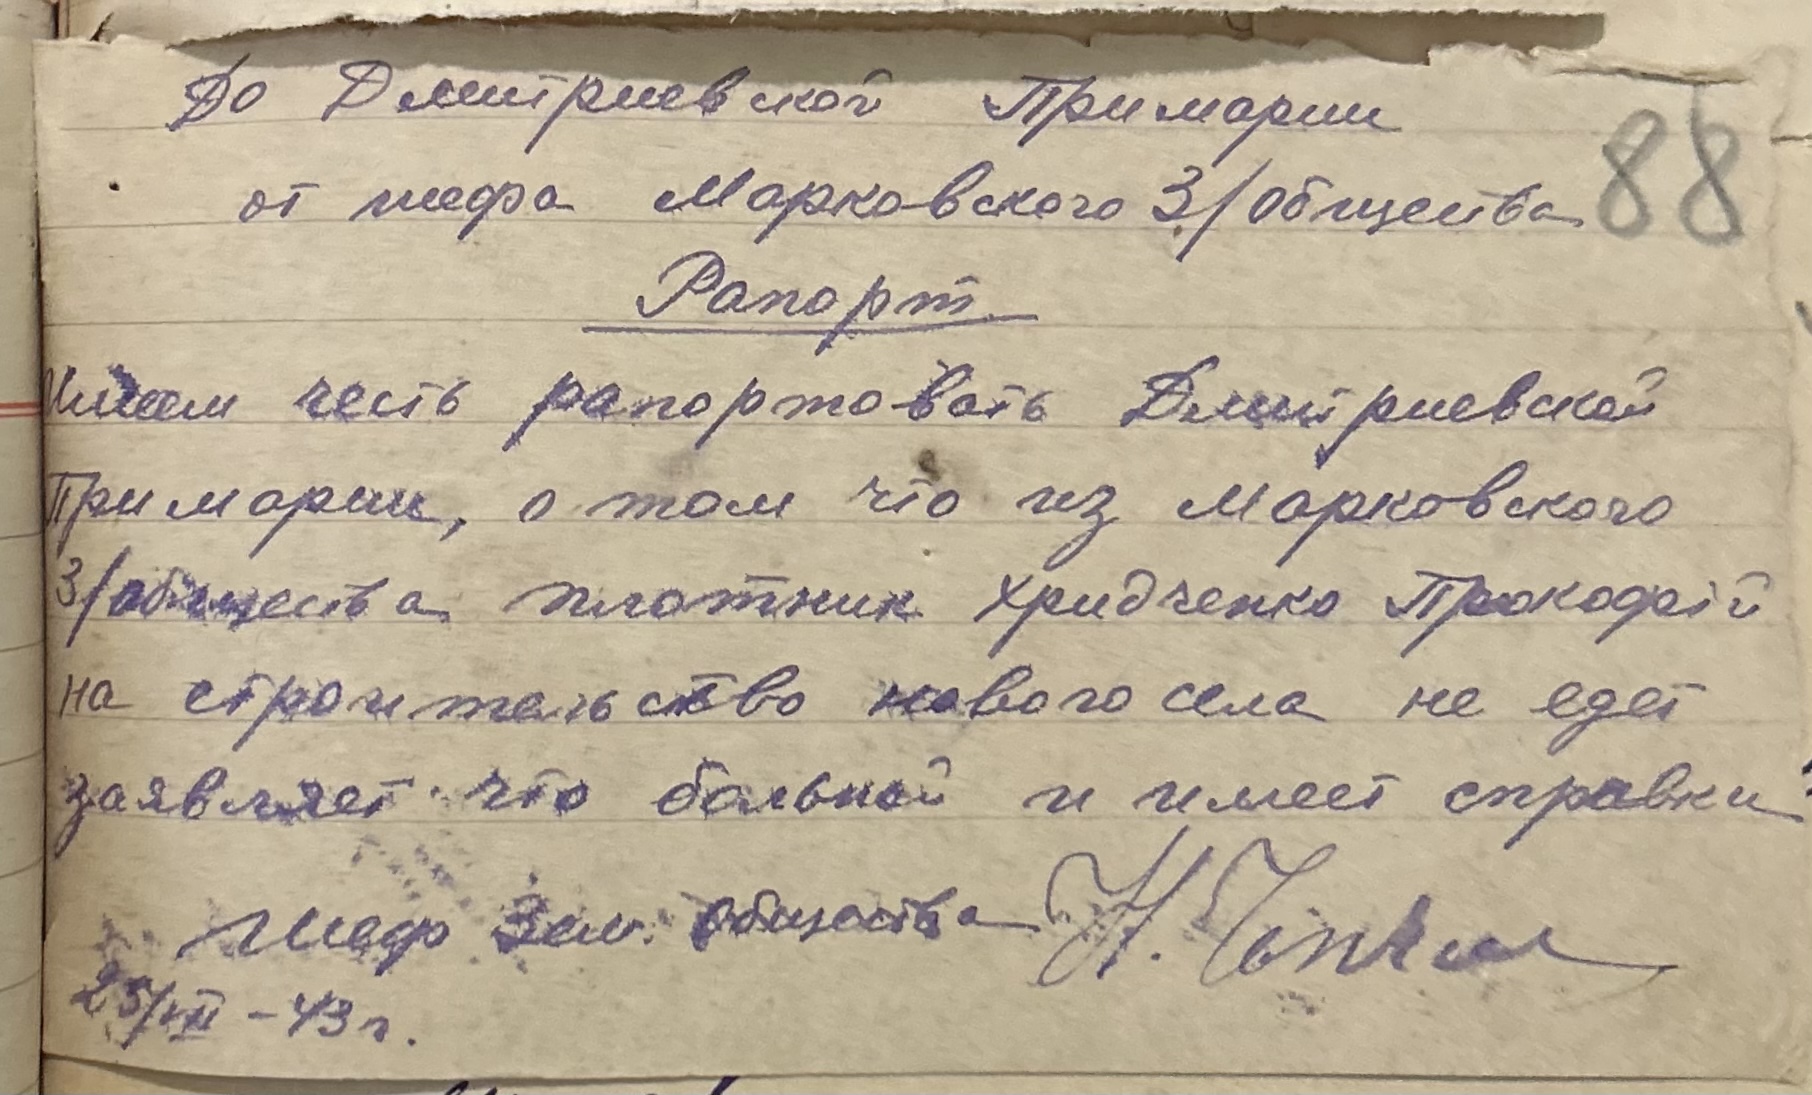 До Дмитриевской Примарии
88
от шефа Марковского З/общества
Рапорт
Имеем честь рапортовать Дмитриевской
Примарии, о том что из Марковского
З/общества плотник Хридченко Прокофій
на строительство нового села не едет
заявляет что больной и имеет справки
Шеф Зем. общества Н.
25/VII - 43 г.